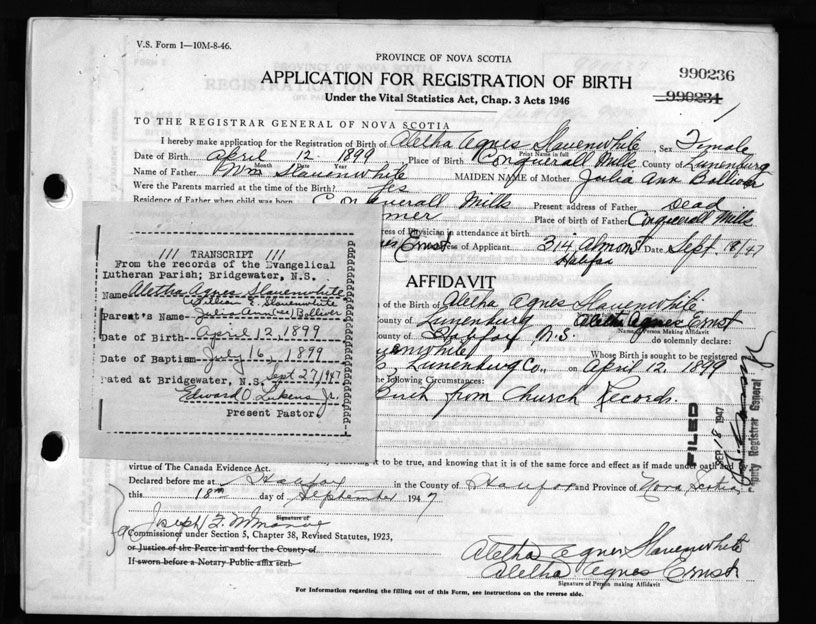 V.S. Form 1—10M-8-46.
PROVINCE OF NOVA SCOTIA
APPLICATION FOR REGISTRATION OF BIRTH
Under the Vital Statistics Act, Chap. 3 Acts 1946
990236
990234
TO THE REGISTRAR GENERAL OF NOVA SCOTIA
I hereby make application for the Registration of Birth of Aletha Agnes Slauenwhite, Sex Female
Print Name in full
Date of Birth April 12 1899 Place of Birth Conquerall Mills County of Lunenburg
Month Date Year
Name of Father Wm Slauenwhite MAIDEN NAME of Mother Julia Ann Bolliver
Were the Parents married at the time of the Birth? Yes
Residence of Father when child was born Conquerall Mills Present address of Father Dead
Place of birth of Father Conquerall Mills
of Physician in attendance at birth
Ernst of Applicant 314 Almont Date Sept. 18/47
Halifax
AFFIDAVIT
of the Birth of Aletha Agnes Slauenwhite
County of Lunenburg Aletha Agnes Ernst
Making Affidavit
County of Halifax N.S. do solemnly declare:
Whose Birth is sought to be registered
Lunenburg Co., on April 12, 1899
the following Circumstances:
Birth from Church Records.
/// TRANSCRIPT ///
From the records of the Evangelical
Lutheran Parish; Bridgewater, N.S.
Name Aletha Agnes Slauenwhite
William Slauenwhite
Parent's Name Julia Ann (nee) Bolliver
Date of Birth April 12, 1899
Date of Baptism July 16, 1899
Dated at Bridgewater, N.S. Sept 27/1947
Edward O Lukens Jr.
Present Pastor
FILED
SEP 18 1947
Deputy Registrar General
to be true, and knowing that it is of the same force and effect as if made under oath and by
virtue of The Canada Evidence Act.
Declared before me at Halifax in the County of Halifax and Province of Nova Scotia
this 18th day of September 1947
Joseph
Signature of
a Commissioner under Section 5, Chapter 38, Revised Statutes, 1923,
or Justice of the Peace in and for the County of
If sworn before a Notary Public affix seal
Aletha Agnes Slauenwhite
Aletha Agnes Ernst
Signature of Person making Affidavit
For Information regarding the filling out of this Form, see instructions on the reverse side.